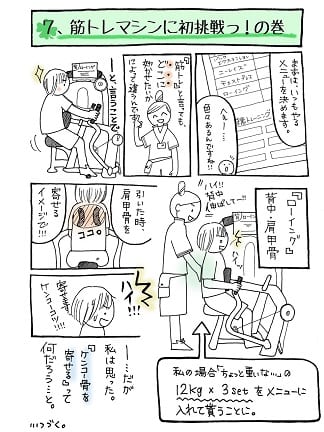 7、筋トレマシンに初挑戦っ!の巻
まずは、いつもやる
メニューを決めます。
ニーレイズ
チェストプレス
ローイング
へぇー…
色々あるんですねぇ!!
『筋トレ』と言っても、
どこに
効かせたいか
によって違うんです。
ーと、言うことで。
『ローイング』
背中・肩甲骨
ハイ!!
背中
伸ばしてー!!
ハイッ
引いた時、
肩甲骨
寄せる
イメージで!!!
ココ。
ハイ!!
寄せます
ケンコーコツ!!!!
…だが
私は思った。
『ケンコー骨を
寄せる』って
何だろう…と。
私の場合「ちょっと重いな…」の
12kg × 3set をメニューに
入れて貰うことに。
つづく。